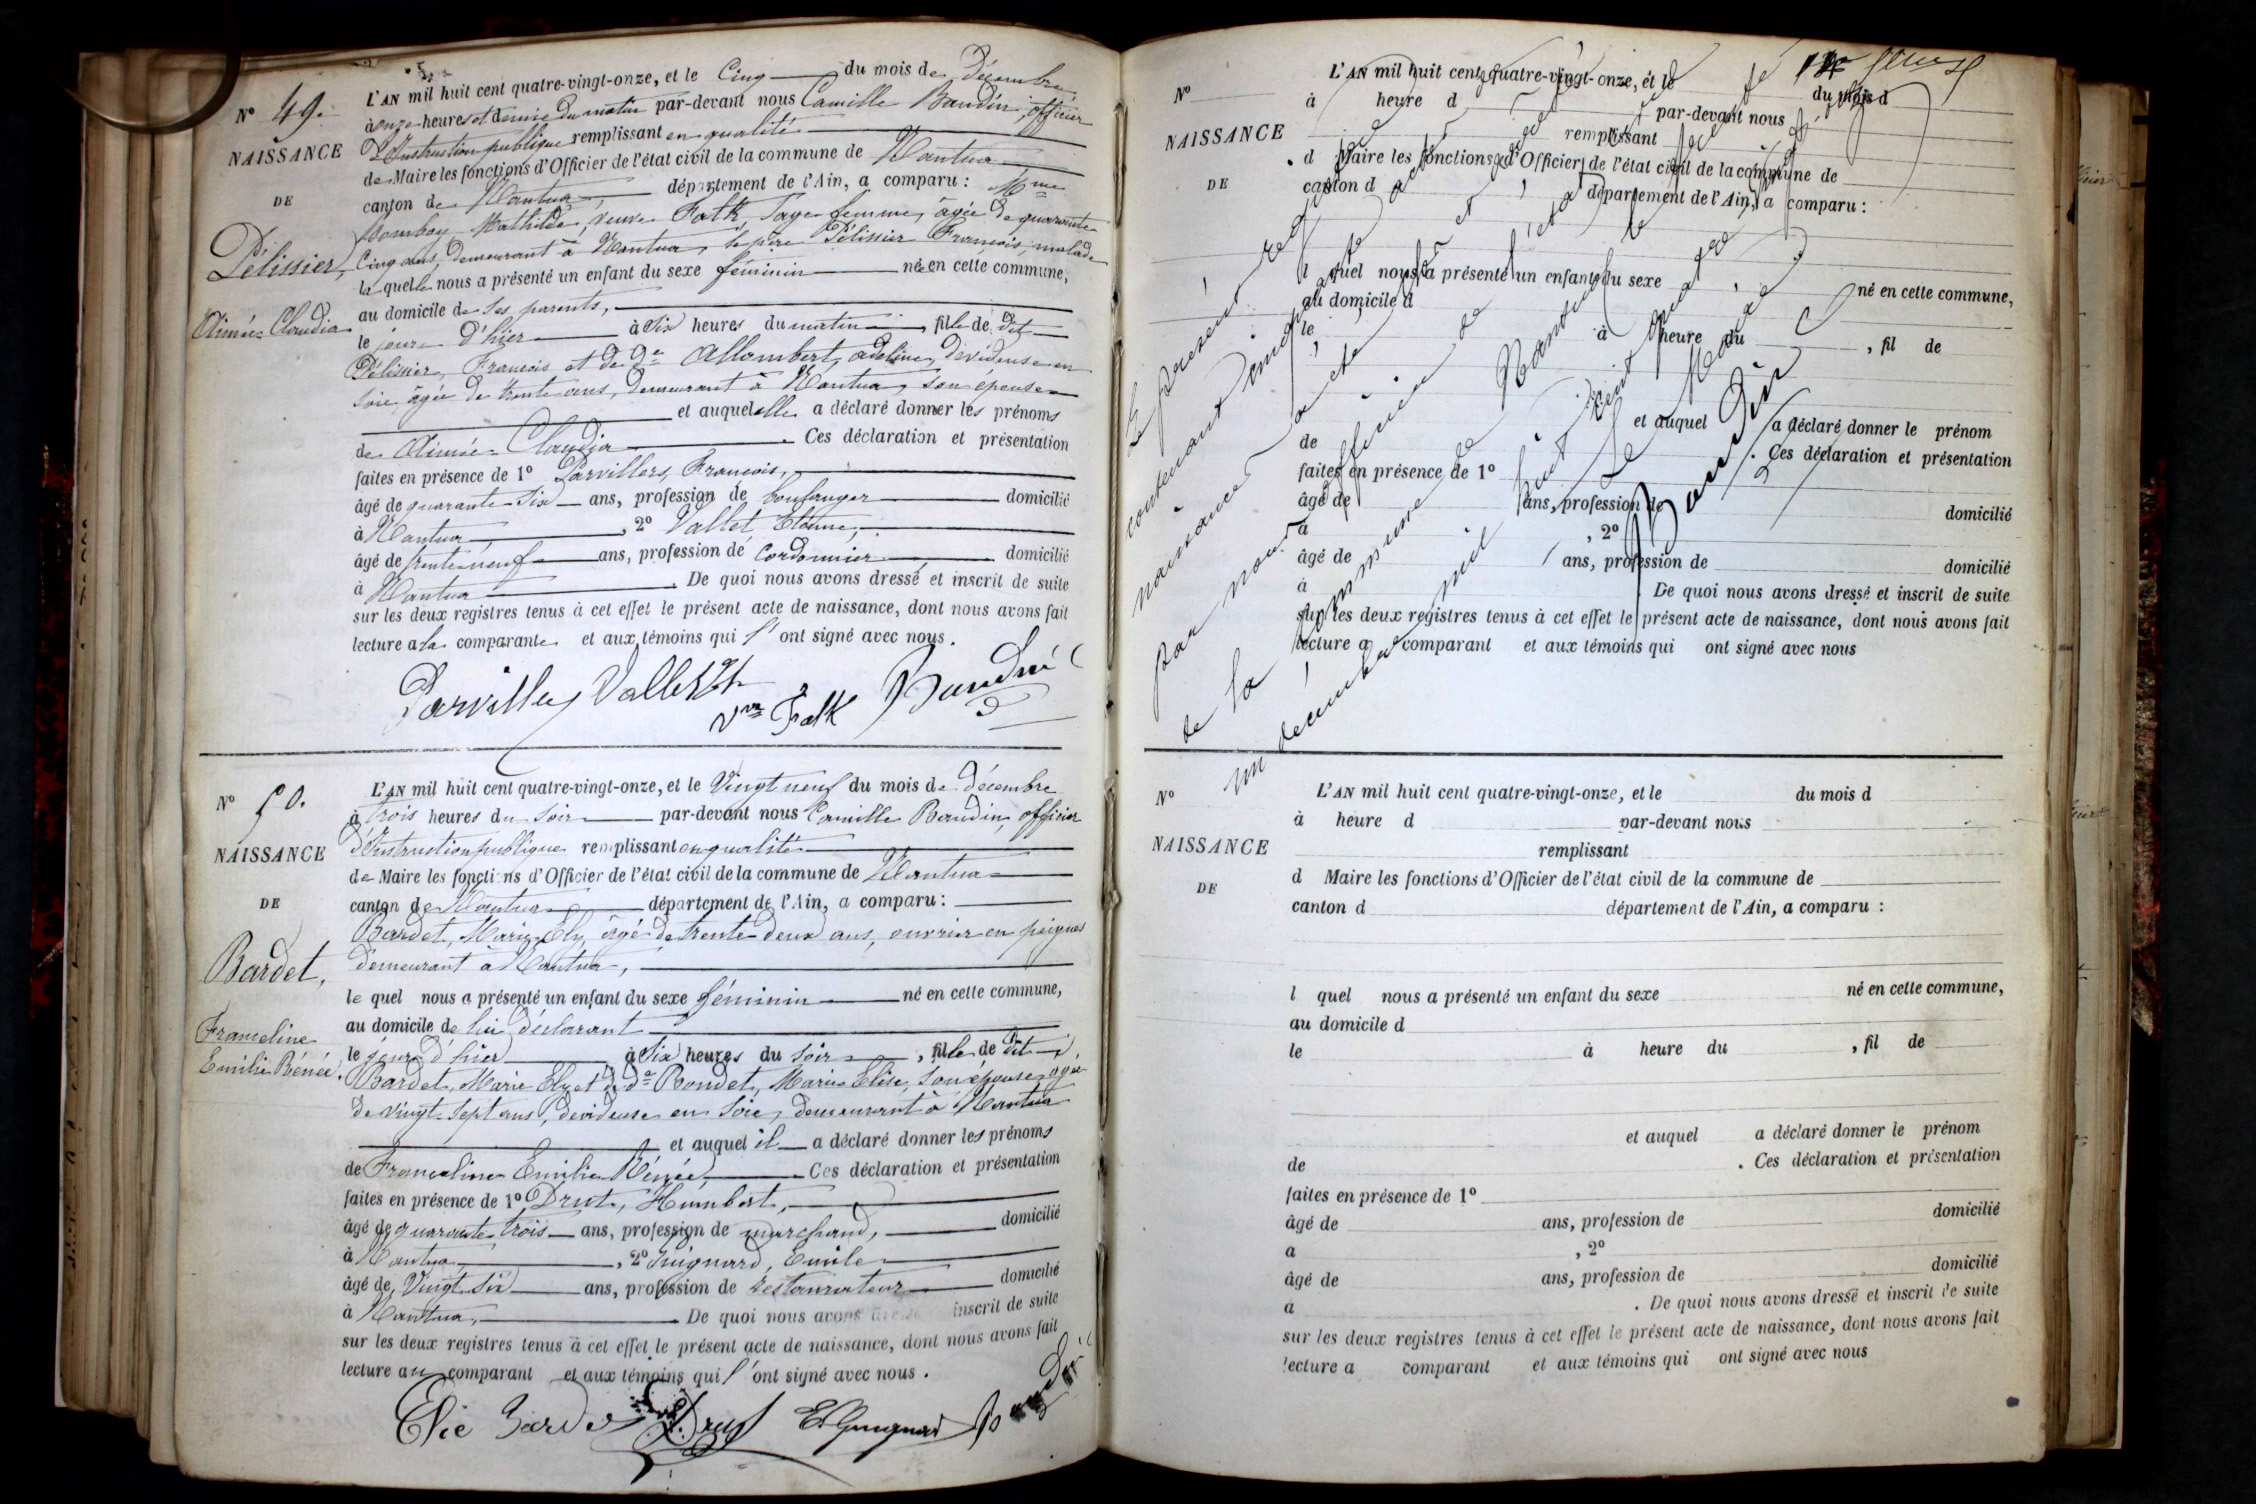 N° 49.
NAISSANCE
DE
Pélissier,
Aimée Claudia
L'AN mil huit cent quatre-vingt-onze, et le Cinq du mois de Décembre,
à onze heures et demie du matin par-devant nous Camille Baudin, officier
d'Instruction publique remplissant en qualité
de Maire les fonctions d'Officier de l'état civil de la commune de Nantua
canton de Nantua, département de l'Ain, a comparu : Mme
Mathilde, veuve Falk, Sage-femme, âgée de quarante-
Cinq ans, demeurant à Nantua, le père Pélissier François, malade
laquelle nous a présenté un enfant du sexe féminin née en cette commune,
au domicile de ses parents,
le jour d'hier à Six heures du matin, fille de dit
Pélissier, François et de De Allombert, Adeline, dévideuse en
soie, âgée de trente ans, demeurant à Nantua, son épouse
et auquel elle a déclaré donner les prénoms
de Aimée Claudia. Ces déclaration et présentation
faites en présence de 1° Parvillers, François,
âgé de quarante-six ans, profession de boulanger domicilié
à Nantua, 2° Vallet, Etienne,
âgé de trente-neuf ans, profession de Cordonnier domicilié
à Nantua. De quoi nous avons dressé et inscrit de suite
sur les deux registres tenus à cet effet le présent acte de naissance, dont nous avons fait
lecture à la comparante et aux témoins qui l'ont signé avec nous.
Vallet
Vve Falk
Baudin
N° 50.
NAISSANCE
DE
Bardet,
Franceline
Emilie Rénée.
L'AN mil huit cent quatre-vingt-onze, et le Vingt neuf du mois de décembre
à trois heures du Soir par-devant nous Camille Baudin, officier
d'Instruction publique remplissant en qualité
de Maire les fonctions d'Officier de l'état civil de la commune de Nantua
canton de Nantua département de l'Ain, a comparu :
Bardet, Marie Ely, âgé de trente-deux ans, ouvrier en peignes
demeurant à Nantua,
le quel nous a présenté un enfant du sexe féminin né en cette commune,
au domicile de lui déclarant
le jour d'hier à Six heures du Soir, fille de dit
Bardet, Marie Ely et de De Rondet, Marie Elise, son épouse, âgée
de vingt-sept ans, dévideuse en Soie, demeurant à Nantua
et auquel il a déclaré donner les prénoms
de Franceline Emilie Rénée. Ces déclaration et présentation
faites en présence de 1° Drut, Humbert,
âgé de quarante-trois ans, profession de marchand, domicilié
à Nantua, 2° Guignard, Emile
âgé de Vingt-Six ans, profession de restaurateur domicilié
à Nantua, De quoi nous avons dressé inscrit de suite
sur les deux registres tenus à cet effet le présent acte de naissance, dont nous avons fait
lecture au comparant et aux témoins qui l'ont signé avec nous.
Elie Bardet Drut E. Guignard Baudin
N°
NAISSANCE
DE
L'AN mil huit cent quatre-vingt-onze, et le du mois d
à heure d par-devant nous
remplissant
d Maire les fonctions d'Officier de l'état civil de la commune de
canton d département de l'Ain, a comparu :
l quel nous a présenté un enfant du sexe né en cette commune,
au domicile d
le à heure du , fil de
et auquel a déclaré donner le prénom
de . Ces déclaration et présentation
faites en présence de 1°
âgé de ans, profession de domicilié
à , 2°
âgé de ans, profession de domicilié
à . De quoi nous avons dressé et inscrit de suite
sur les deux registres tenus à cet effet le présent acte de naissance, dont nous avons fait
lecture a comparant et aux témoins qui ont signé avec nous
Le présent registre
contenant cinquante actes de
naissance a été
par nous officier de l'état
de la commune de Nantua le
décembre mil huit cent quatre
Le Maire
Baudin
N°
NAISSANCE
DE
L'AN mil huit cent quatre-vingt-onze, et le du mois d
à heure d par-devant nous
remplissant
d Maire les fonctions d'Officier de l'état civil de la commune de
canton d département de l'Ain, a comparu :
l quel nous a présenté un enfant du sexe né en cette commune,
au domicile d
le à heure du , fil de
et auquel a déclaré donner le prénom
de . Ces déclaration et présentation
faites en présence de 1°
âgé de ans, profession de domicilié
a , 2°
âgé de ans, profession de domicilié
à . De quoi nous avons dressé et inscrit de suite
sur les deux registres tenus à cet effet le présent acte de naissance, dont nous avons fait
lecture a comparant et aux témoins qui ont signé avec nous